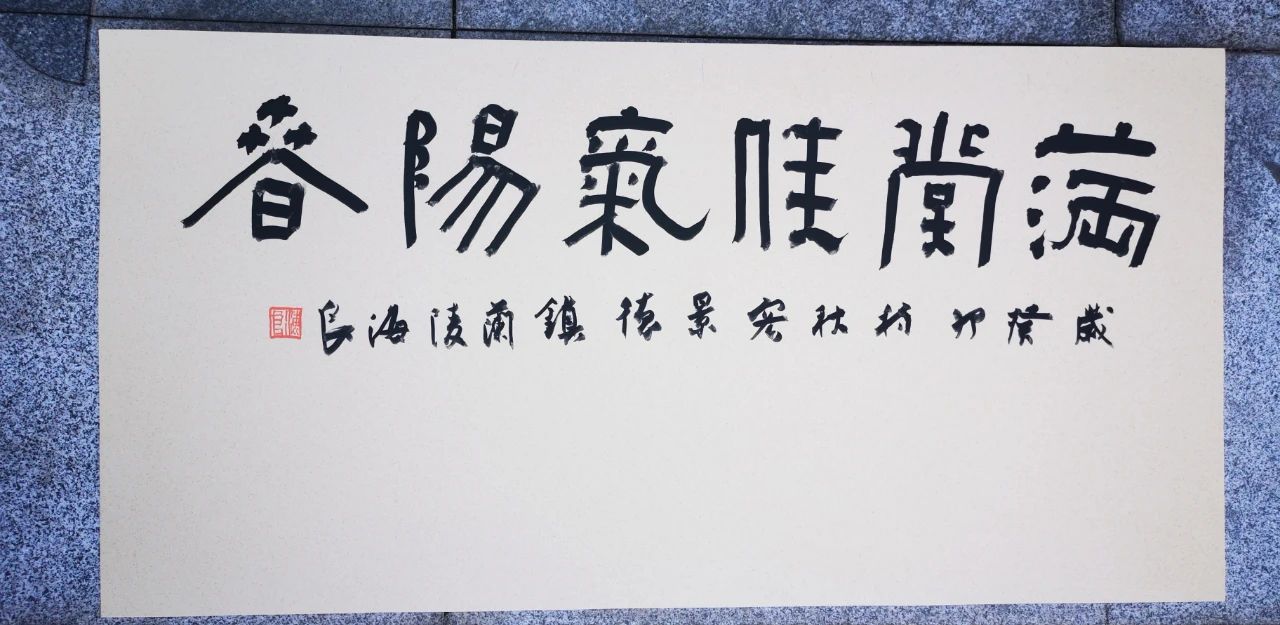 滿堂佳氣陽春
歲癸卯初秋客景德鎮蘭陵海良